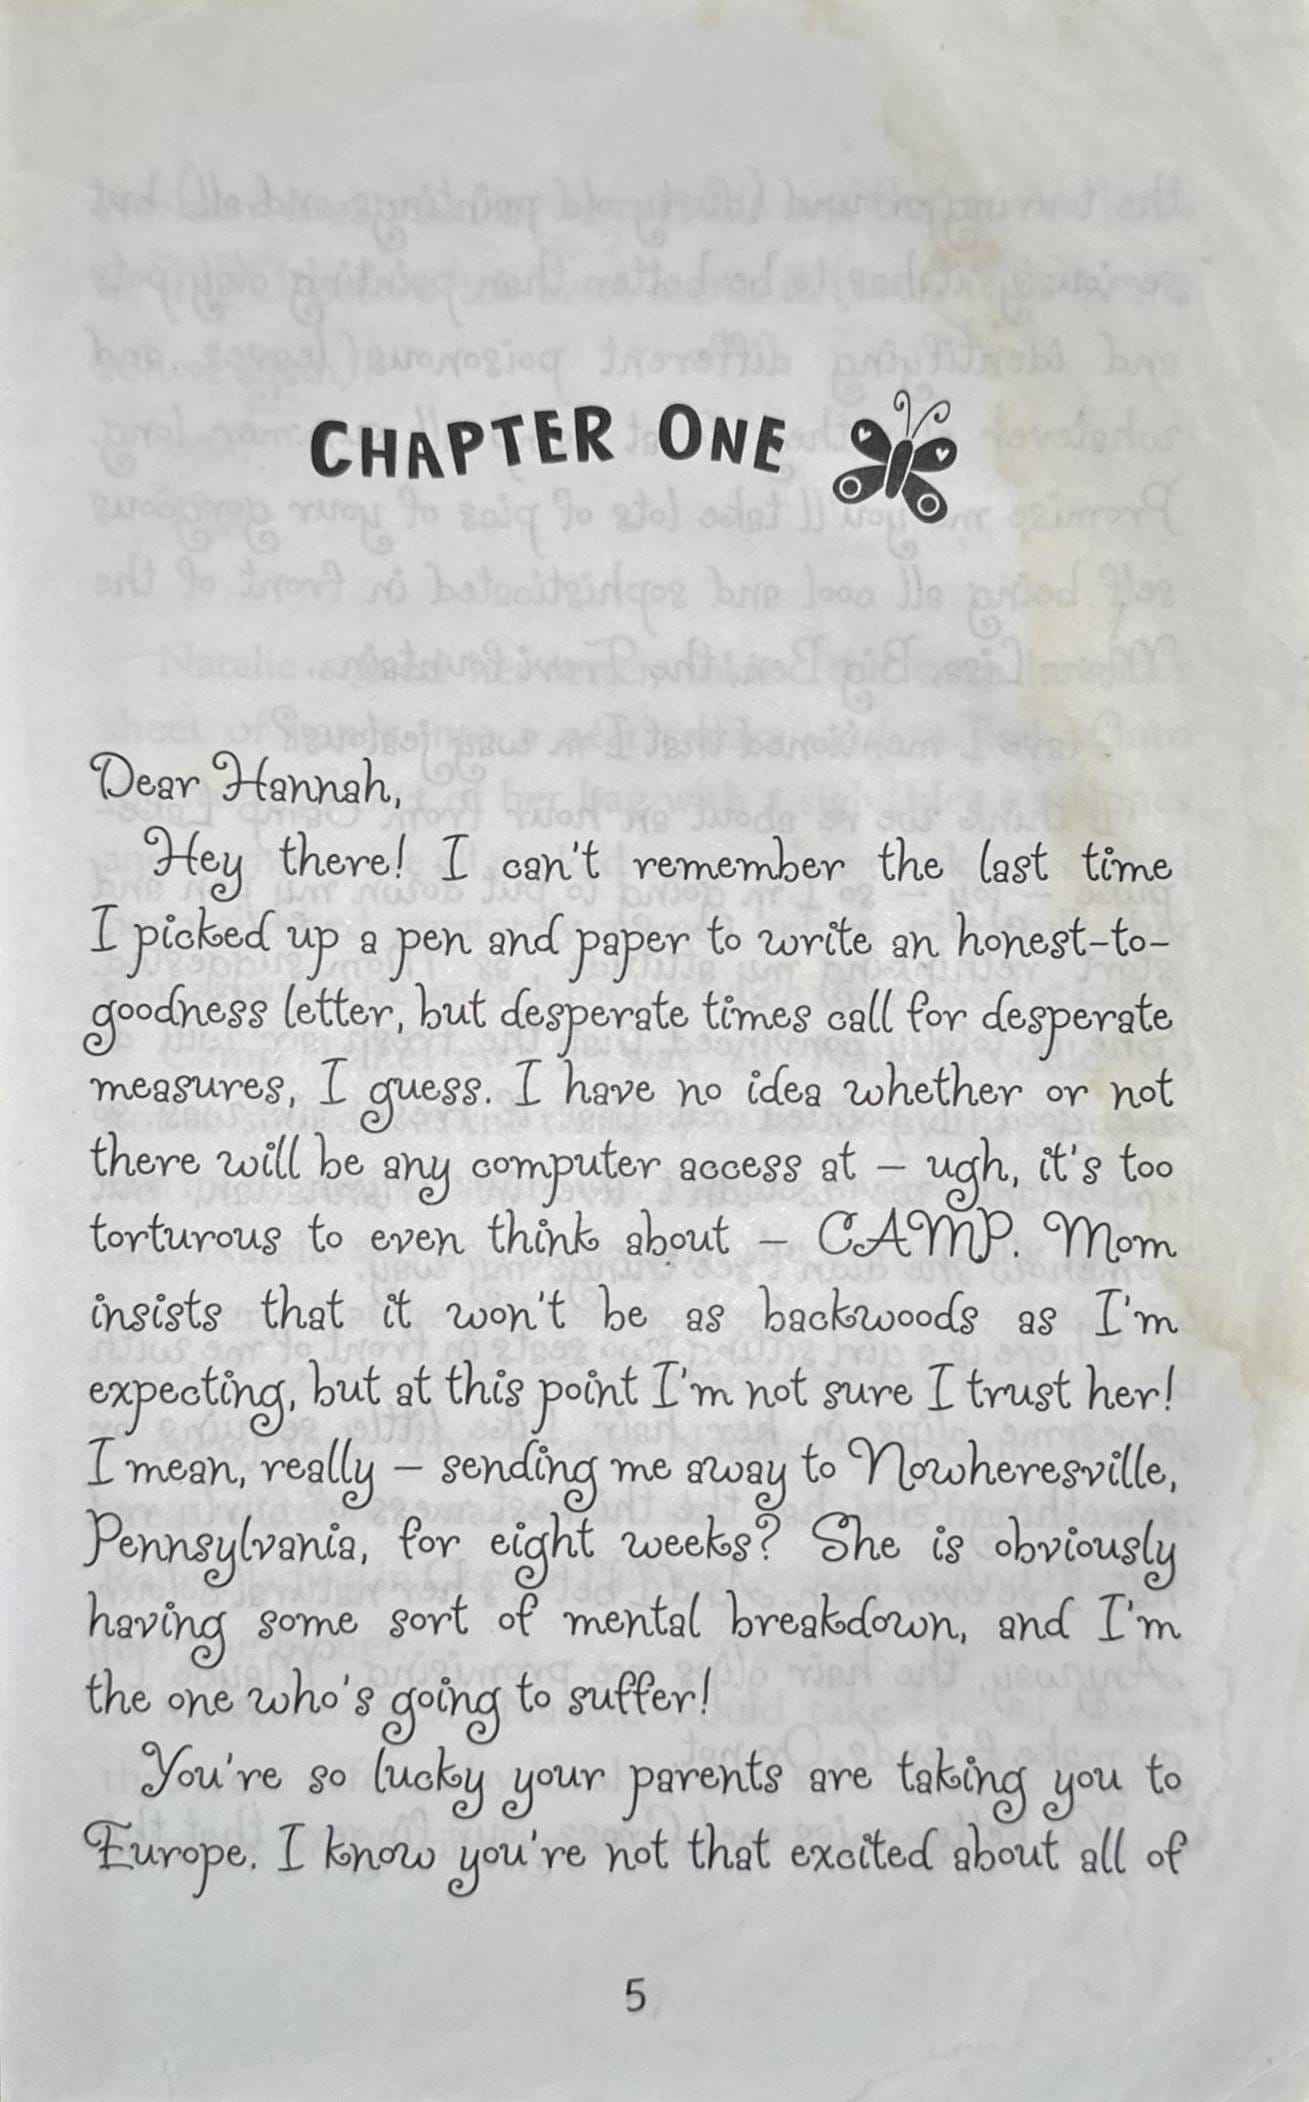 CHAPTER ONE
Dear Hannah,
Hey there! I can't remember the last time
I picked up a pen and paper to write an honest-to-
goodness letter, but desperate times call for desperate
measures, I guess. I have no idea whether or not
there will be any computer access at – ugh, it's too
torturous to even think about – CAMP. Mom
insists that it won't be as backwoods as I'm
expecting, but at this point I'm not sure I trust her!
I mean, really – sending me away to Nowheresville,
Pennsylvania, for eight weeks? She is obviously
having some sort of mental breakdown, and I'm
the one who's going to suffer!
You're so lucky your parents are taking you to
Europe. I know you're not that excited about all of
5